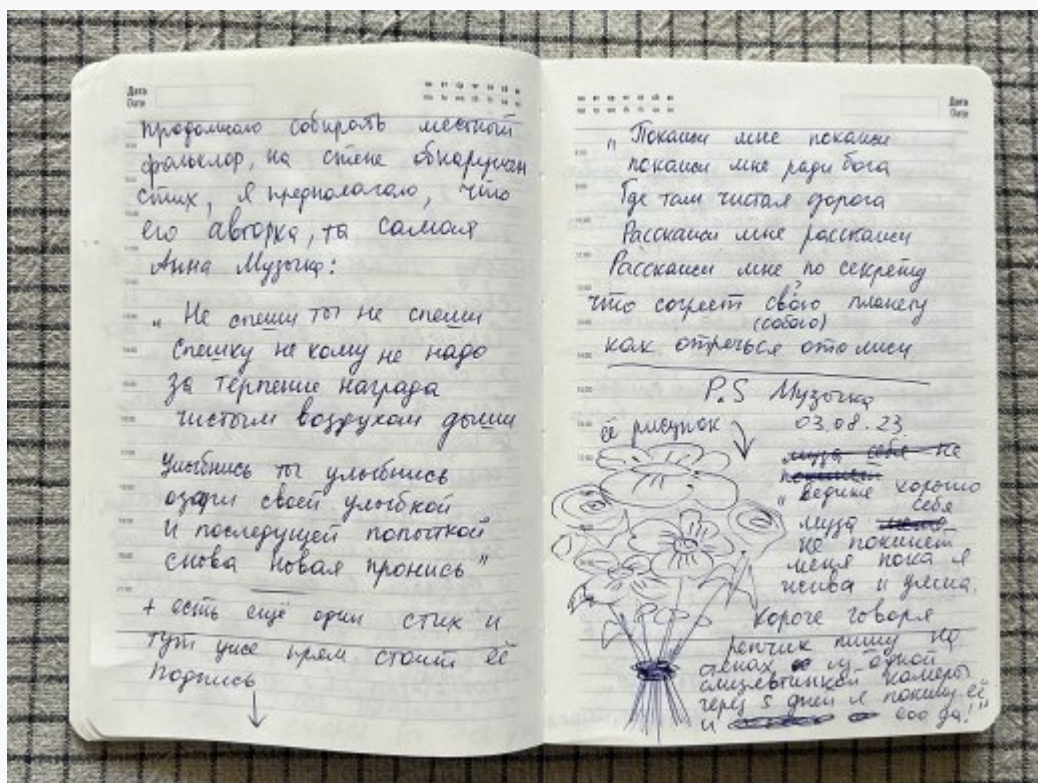 Дата
Date
продолжаю собирать местный
фольклор, на стене обнаружен
стих, я предполагаю, что
его авторка, та самая
Анна Музычка:
„ Не спеши ты не спеши
спешку не кому не надо
за терпение награда
чистым воздухом дыши
Улыбнись ты улыбнись
озари своей улыбкой
И последущей попыткой
снова новая пронись"
+ есть ещё один стих и
тут уже прям стоит её
подпись
Дата
Date
„ Покажи мне покажи
покажи мне ради бога
Где там чистая дорога
Расскажи мне расскажи
Расскажи мне по секрету
что согреет свою планету
(собою)
как отречься ото лжи
P.S Музычка
03.08.23
её рисунок
муза себя не
покинет
„ ведите хорошо
себя
муза
не покинет
меня пока я
жива и умна.
короче говоря
репчик пишу на
стенах из одной
камеры
через 5 дней я покину её
и